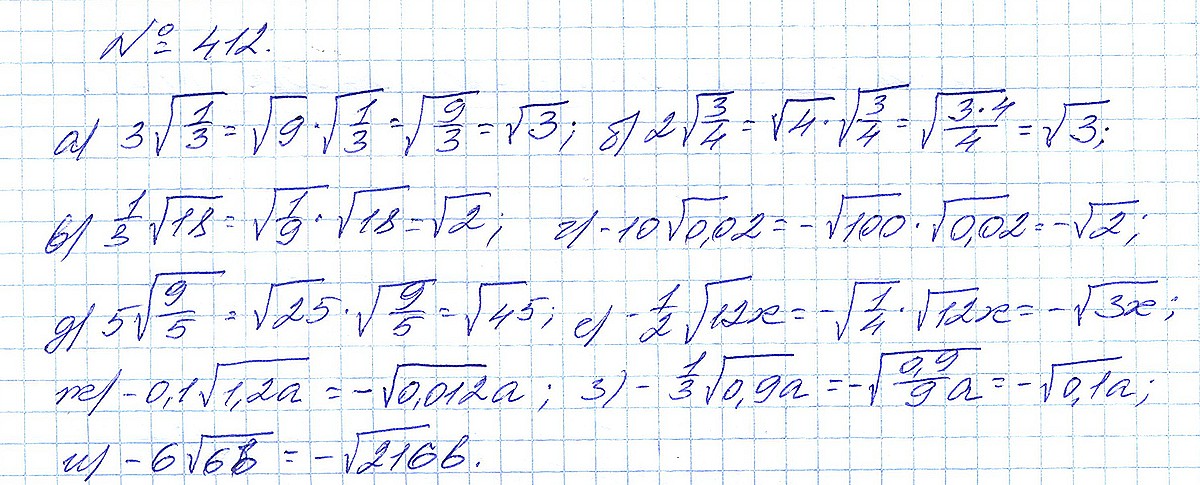 № 412.
а) 3√(1/3) = √9 · √(1/3) = √(9/3) = √3; б) 2√(3/4) = √4 · √(3/4) = √(3·4/4) = √3;
в) 1/3 √18 = √(1/9) · √18 = √2; г) -10√0,02 = -√100 · √0,02 = -√2;
д) 5√(9/5) = √25 · √(9/5) = √45; е) -1/2 √12x = -√(1/4) · √12x = -√3x;
ж) -0,1√1,2a = -√0,012a; з) -1/3 √0,9a = -√(0,9/9 a) = -√0,1a;
и) -6√6b = -√216b.